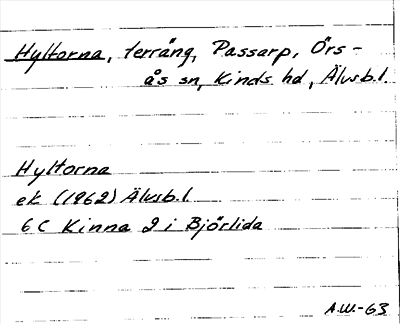 Hyltorna, terräng, Passarp, Örs-
ås sn, Kinds hd, Älvsb.l.
Hyltorna
ek (1962) Älvsb.l.
6C Kinna 2 i Björlida
A.W.-63